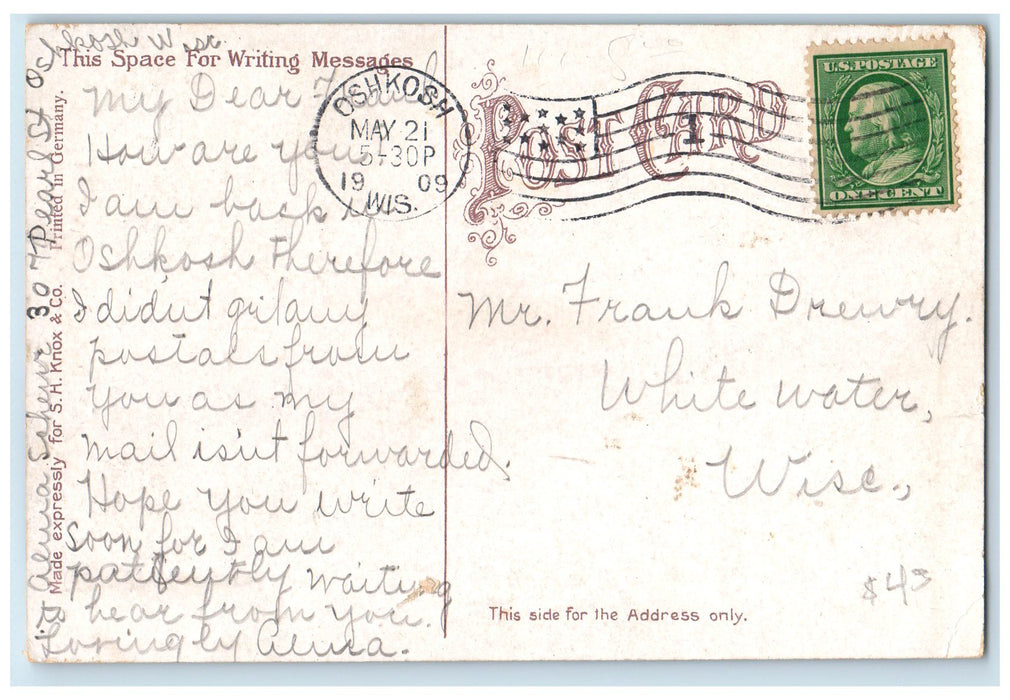 Oshkosh Wisc.
This Space For Writing Messages
My Dear
How are you
I am back in
Oshkosh therefore
I didn't git any
postals from
you as my
mail isn't forwarded.
Hope you write
soon for I am
patiently waiting
hear from you.
Lovingly Alma.
Alma 307 Pearl St
Made expressly for S.H. Knox & Co. Printed in Germany.
OSHKOSH
MAY 21
5-30P
1909
WIS.
POST CARD
1
U.S. POSTAGE
ONE CENT
Mr. Frank Drewry.
White water,
Wisc.,
$4
This side for the Address only.